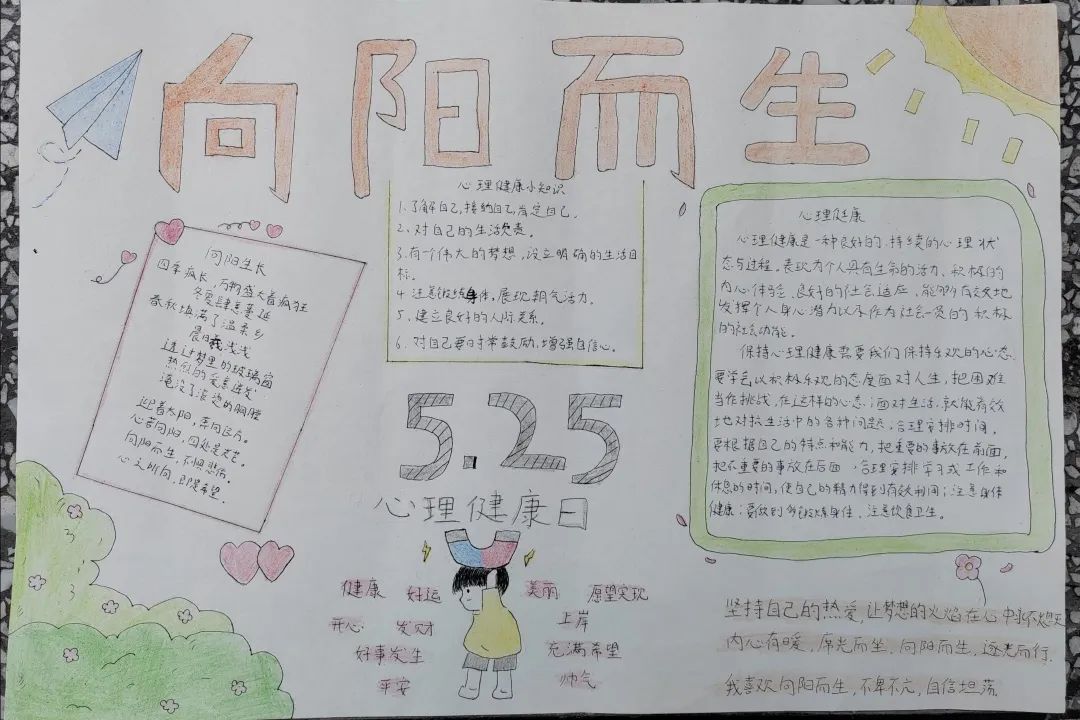 向阳而生
向阳生长
四季疯长,万物盛大着疯狂
冬夏肆意蔓延
春秋填满了温柔乡
晨曦浅浅
透过梦里的玻璃窗
热烈的爱意迸发
淹没了滚烫的胸膛
迎着太阳,奔向巨片。
心若向阳,四处是光芒。
向阳而生,不惧悲伤。
心之所向,即是希望。
心理健康小知识
1.了解自己,接纳自己,肯定自己。
2、对自己的生活负责。
3.有一个伟大的梦想,设立明确的生活目
标。
4 注意锻练身体,展现朝气活力。
5、建立良好的人际关系。
6.对自己要时常鼓励,增强自信心。
5.25
心理健康日
健康 好运 美丽 愿望实现
开心 发财 上岸
好事发生 充满希望
平安 帅气
心理健康
心理健康是一种良好的、持续的心理状
态与过程,表现为个人具有生命的活力、积极的
内心体验、良好的社会适应,能够有效地
发挥个人身心潜力以及作为社会一员的积极
的社会功能。
保持心理健康需要我们保持乐观的心态,
要学会以积极乐观的态度面对人生,把困难
当作挑战,在这样的心态面对生活,就能有效
地对抗生活中的各种问题,合理安排时间,
要根据自己的特点和能力,把重要的事放在前面,
把不重要的事放在后面,合理安排学习或工作和
休息的时间,使自己的精力得到有效利用;注意身体
健康:要做到多锻炼身体,注意饮食卫生。
坚持自己的热爱,让梦想的火焰在心中永不熄灭
内心有暖,席光而坐,向阳而生,逐光而行.
我喜欢向阳而生,不卑不亢,自信坦荡